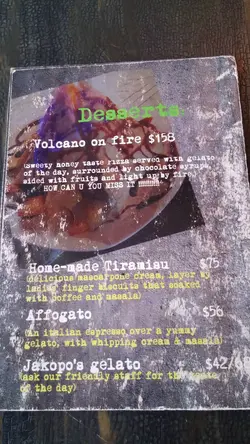 Desserts
Volcano on fire $158
(Sweety honey taste Pizza served with gelato
of the day, surrounded by chocolate syrups,
sided with fruits and light up by fire.)
HOW CAN U YOU MISS IT
Home-made Tiramisu $75
(delicious mascarpone cream, layer by
ladies finger biscuits that soaked
with coffee and masala)
Affogato $56
(An italian espresso over a yummy
gelato, with whipping cream & masala)
Jakopo's gelato $42/6
(ask our friendly staff for the taste
of the day)